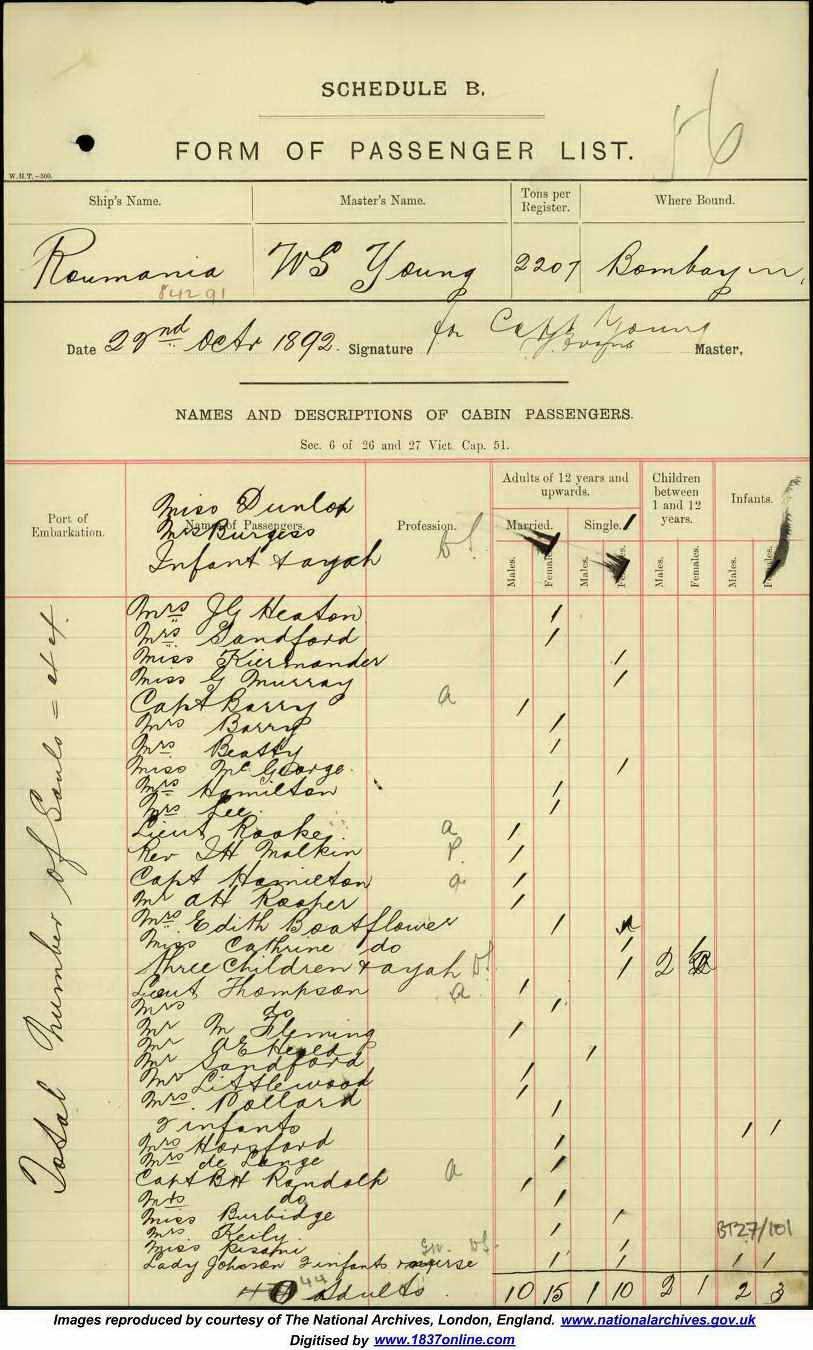 SCHEDULE B.
56
FORM OF PASSENGER LIST.
W.H.T.—500.
Ship's Name. Master's Name. Tons per Register. Where Bound.
Roumania WG Young 2207 Bombay
84291
Date 22nd Octr 1892. Signature for Capt Young Master.
NAMES AND DESCRIPTIONS OF CABIN PASSENGERS.
Sec. 6 of 26 and 27 Vict. Cap. 51.
Port of Embarkation. Names of Passengers. Profession. Adults of 12 years and upwards. Children between 1 and 12 years. Infants.
Married. Single.
Males. Females. Males. Females. Males. Females. Males. Females.
Miss Dunlop
Mrs Burgess
Infant & ayah
Total number of Souls =
Mrs JG Heaton 1
Mrs Sandford 1
Miss Kiernander 1
Miss G Murray 1
Capt Barry a 1
Mrs Barry 1
Mrs Beatty 1
Miss Mc George 1
Mrs Hamilton 1
Mrs Lee 1
Lieut Rooke a 1
Rev IH Malkin P. 1
Capt Hamilton a 1
Mr AH Rooper 1
Mrs Edith Boatflower 1
Miss Cathrine do 1
three Children & ayah 1 2
Lieut Thompson a 1
Mrs do 1
Mr M Fleming 1
Mr 1
Mr Sandford 1
Mr Littlewood 1
Mrs Pollard 1
2 infants 1 1
Mrs Horsford 1
Mrs de Lange 1
Capt BH Randolph a 1
Mrs do 1
Miss Burbidge 1
Mrs Keily 1
BT27/101
Miss 1
Lady Johnson 2 infants nurse 1 1 1 1
44 adults 10 15 1 10 2 1 2 3
Images reproduced by courtesy of The National Archives, London, England. www.nationalarchives.gov.uk
Digitised by www.1837online.com